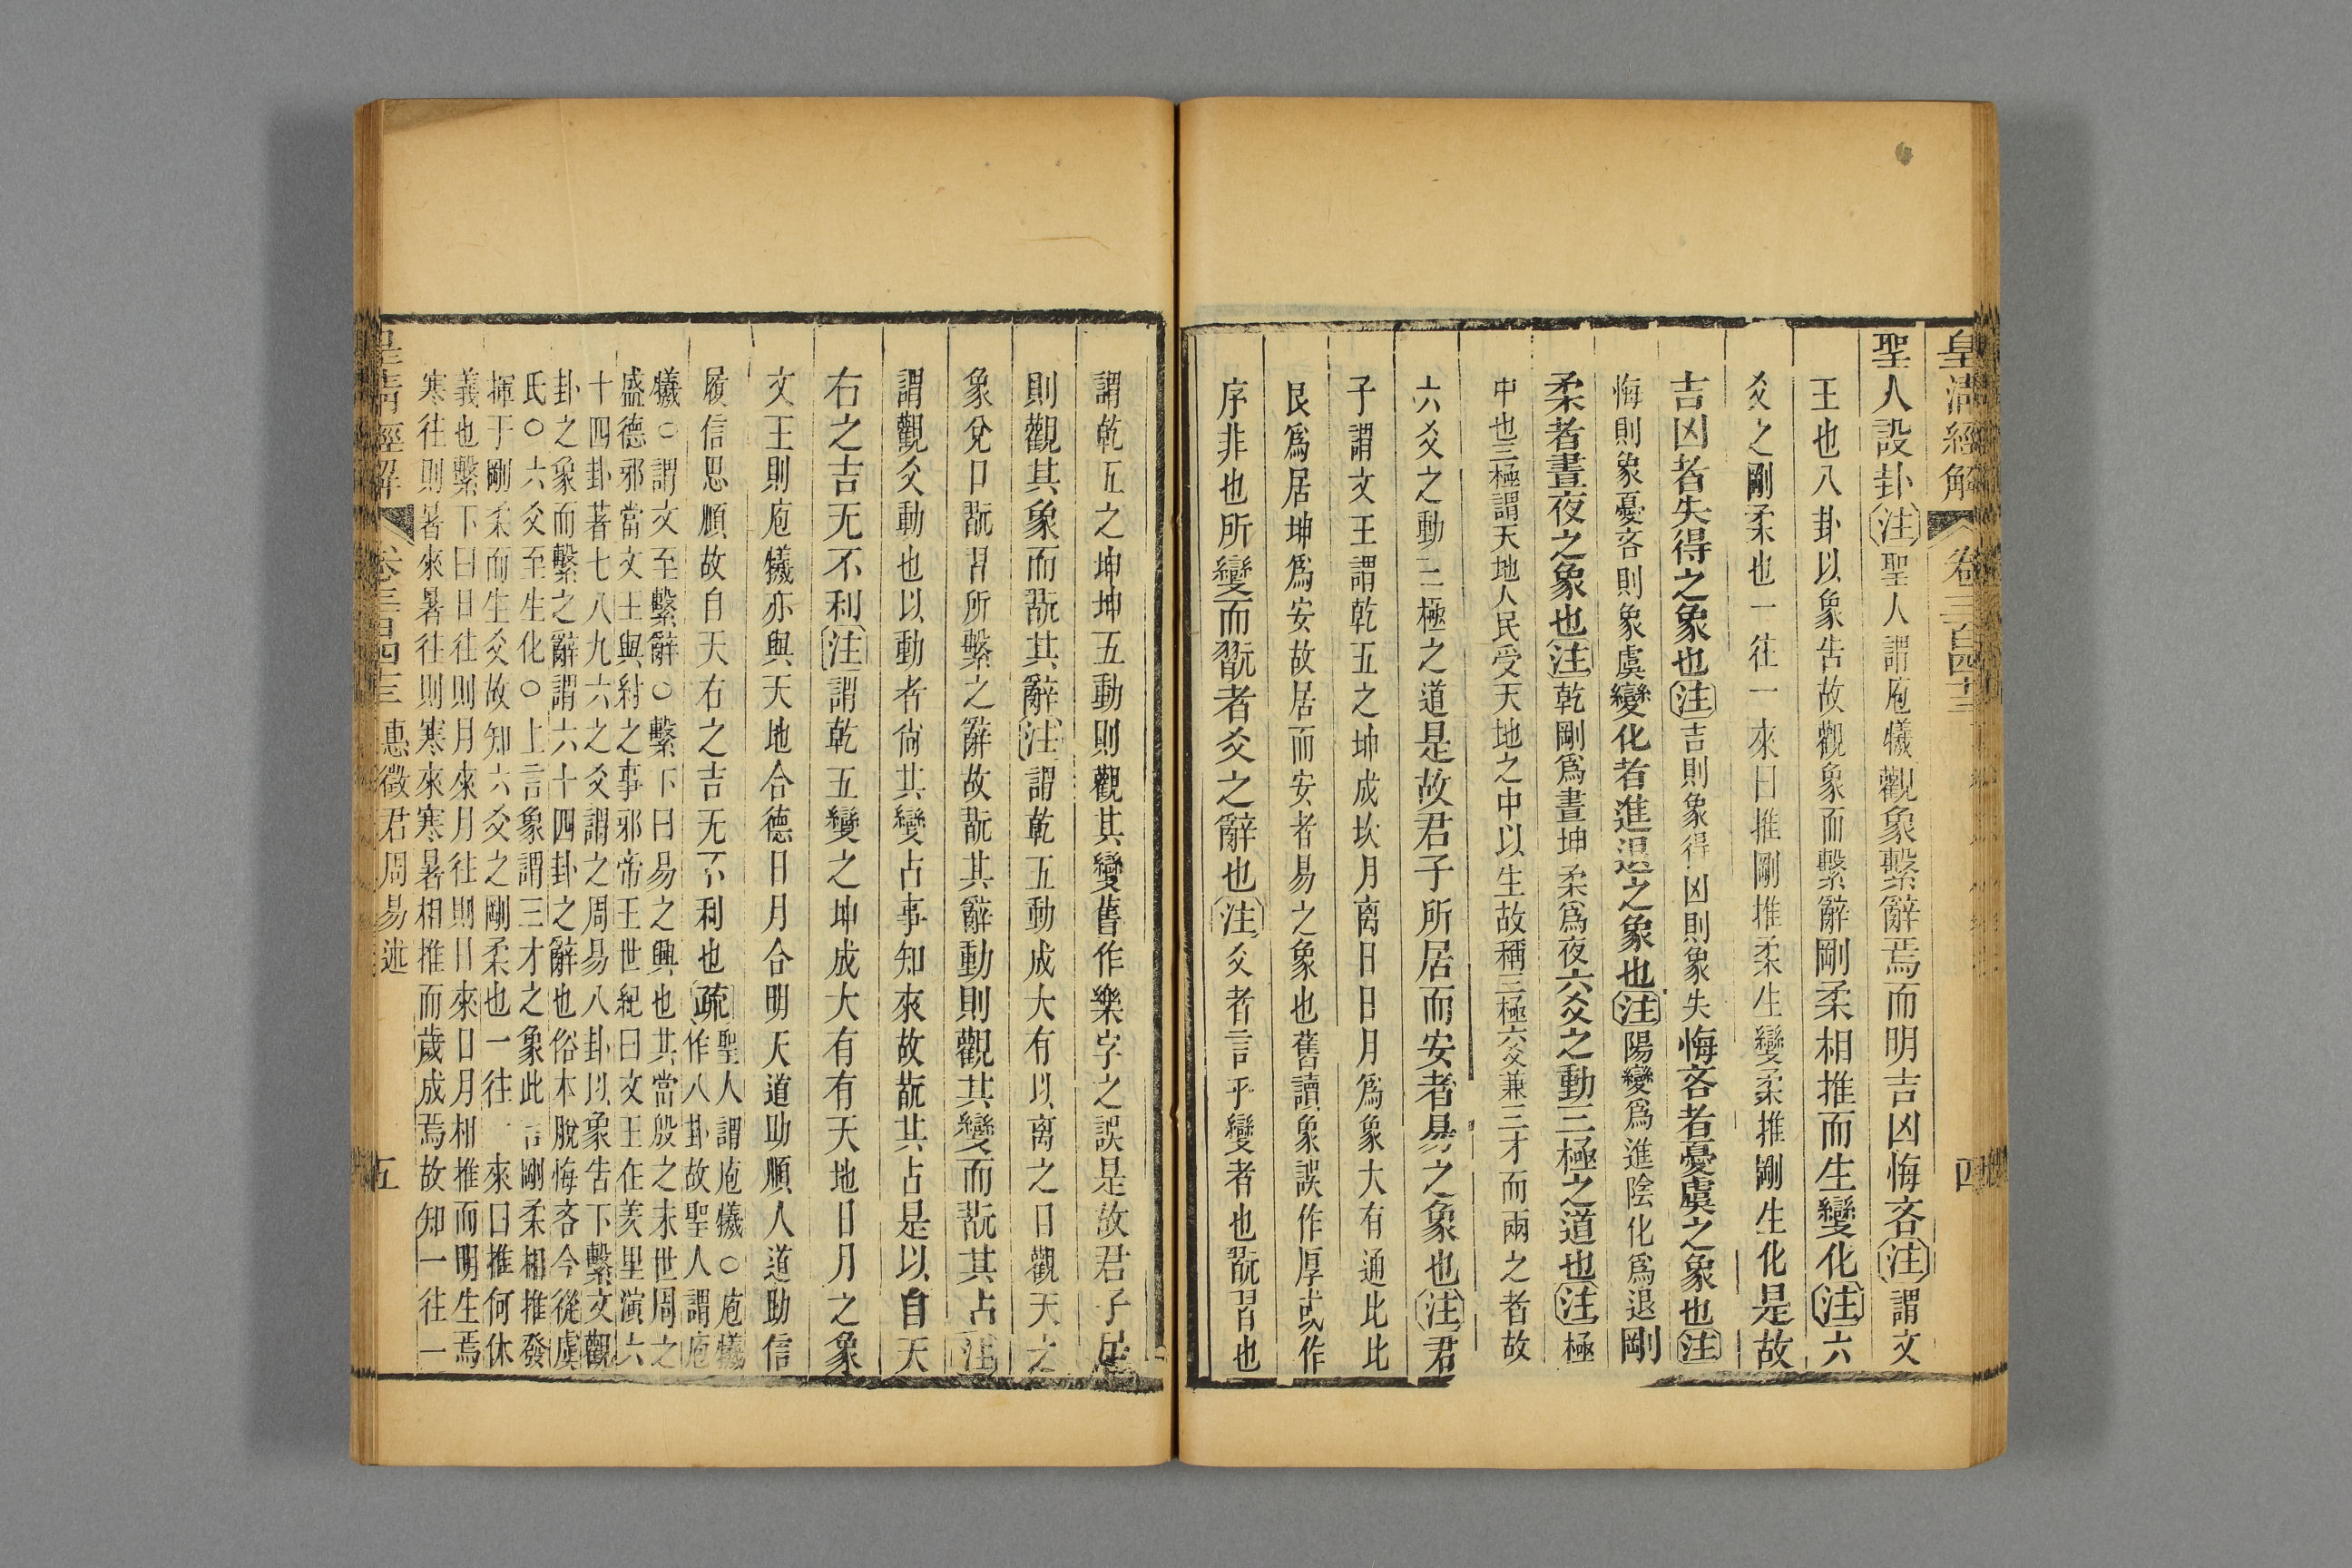 皇清經解 卷三百四十三 四
聖人設卦注聖人謂庖犧觀象繫辭焉而明吉凶悔吝注謂文
王也八卦以象告故觀象而繫辭剛柔相推而生變化注六
爻之剛柔也一往一來曰推剛推柔生變柔推剛生化是故
吉凶者失得之象也注吉則象得凶則象失悔吝者憂虞之象也注
悔則象憂吝則象虞變化者進退之象也注陽變爲進陰化爲退剛
柔者晝夜之象也注乾剛爲晝坤柔爲夜六爻之動三極之道也注極
中也三極謂天地人民受天地之中以生故稱三極六爻兼三才而兩之者故
六爻之動三極之道是故君子所居而安者易之象也注君
子謂文王謂乾五之坤成坎月离日日月爲象大有通比比
艮爲居坤爲安故居而安者易之象也舊讀象誤作厚或作
序非也所變而翫者爻之辭也注爻者言乎變者也翫習也
謂乾五之坤坤五動則觀其變舊作樂字之誤是故君子居
則觀其象而翫其辭注謂乾五動成大有以离之目觀天之
象兌口翫習所繫之辭故翫其辭動則觀其變而翫其占注
謂觀爻動也以動者尙其變占事知來故翫其占是以自天
右之吉无不利注謂乾五變之坤成大有有天地日月之象
文王則庖犧亦與天地合德日月合明天道助順人道助信
履信思順故自天右之吉无不利也疏聖人謂庖犧○庖犧
作八卦故聖人謂庖
犧○謂文至繫辭○繫下曰易之興也其當殷之末世周之
盛德邪當文王與紂之事邪帝王世紀曰文王在羑里演六
十四卦著七八九六之爻謂之周易八卦以象告下繫文觀
卦之象而繫之辭謂六十四卦之辭也俗本脫悔吝今從虞
氏○六爻至生化○上言象謂三才之象此言剛柔相推發
揮于剛柔而生爻故知六爻之剛柔也一往一來曰推何休
義也繫下曰日往則月來月往則日來日月相推而明生焉
寒往則暑來暑往則寒來寒暑相推而歲成焉故知一往一
皇清經解 卷三百四十三 惠徵君周易述 五